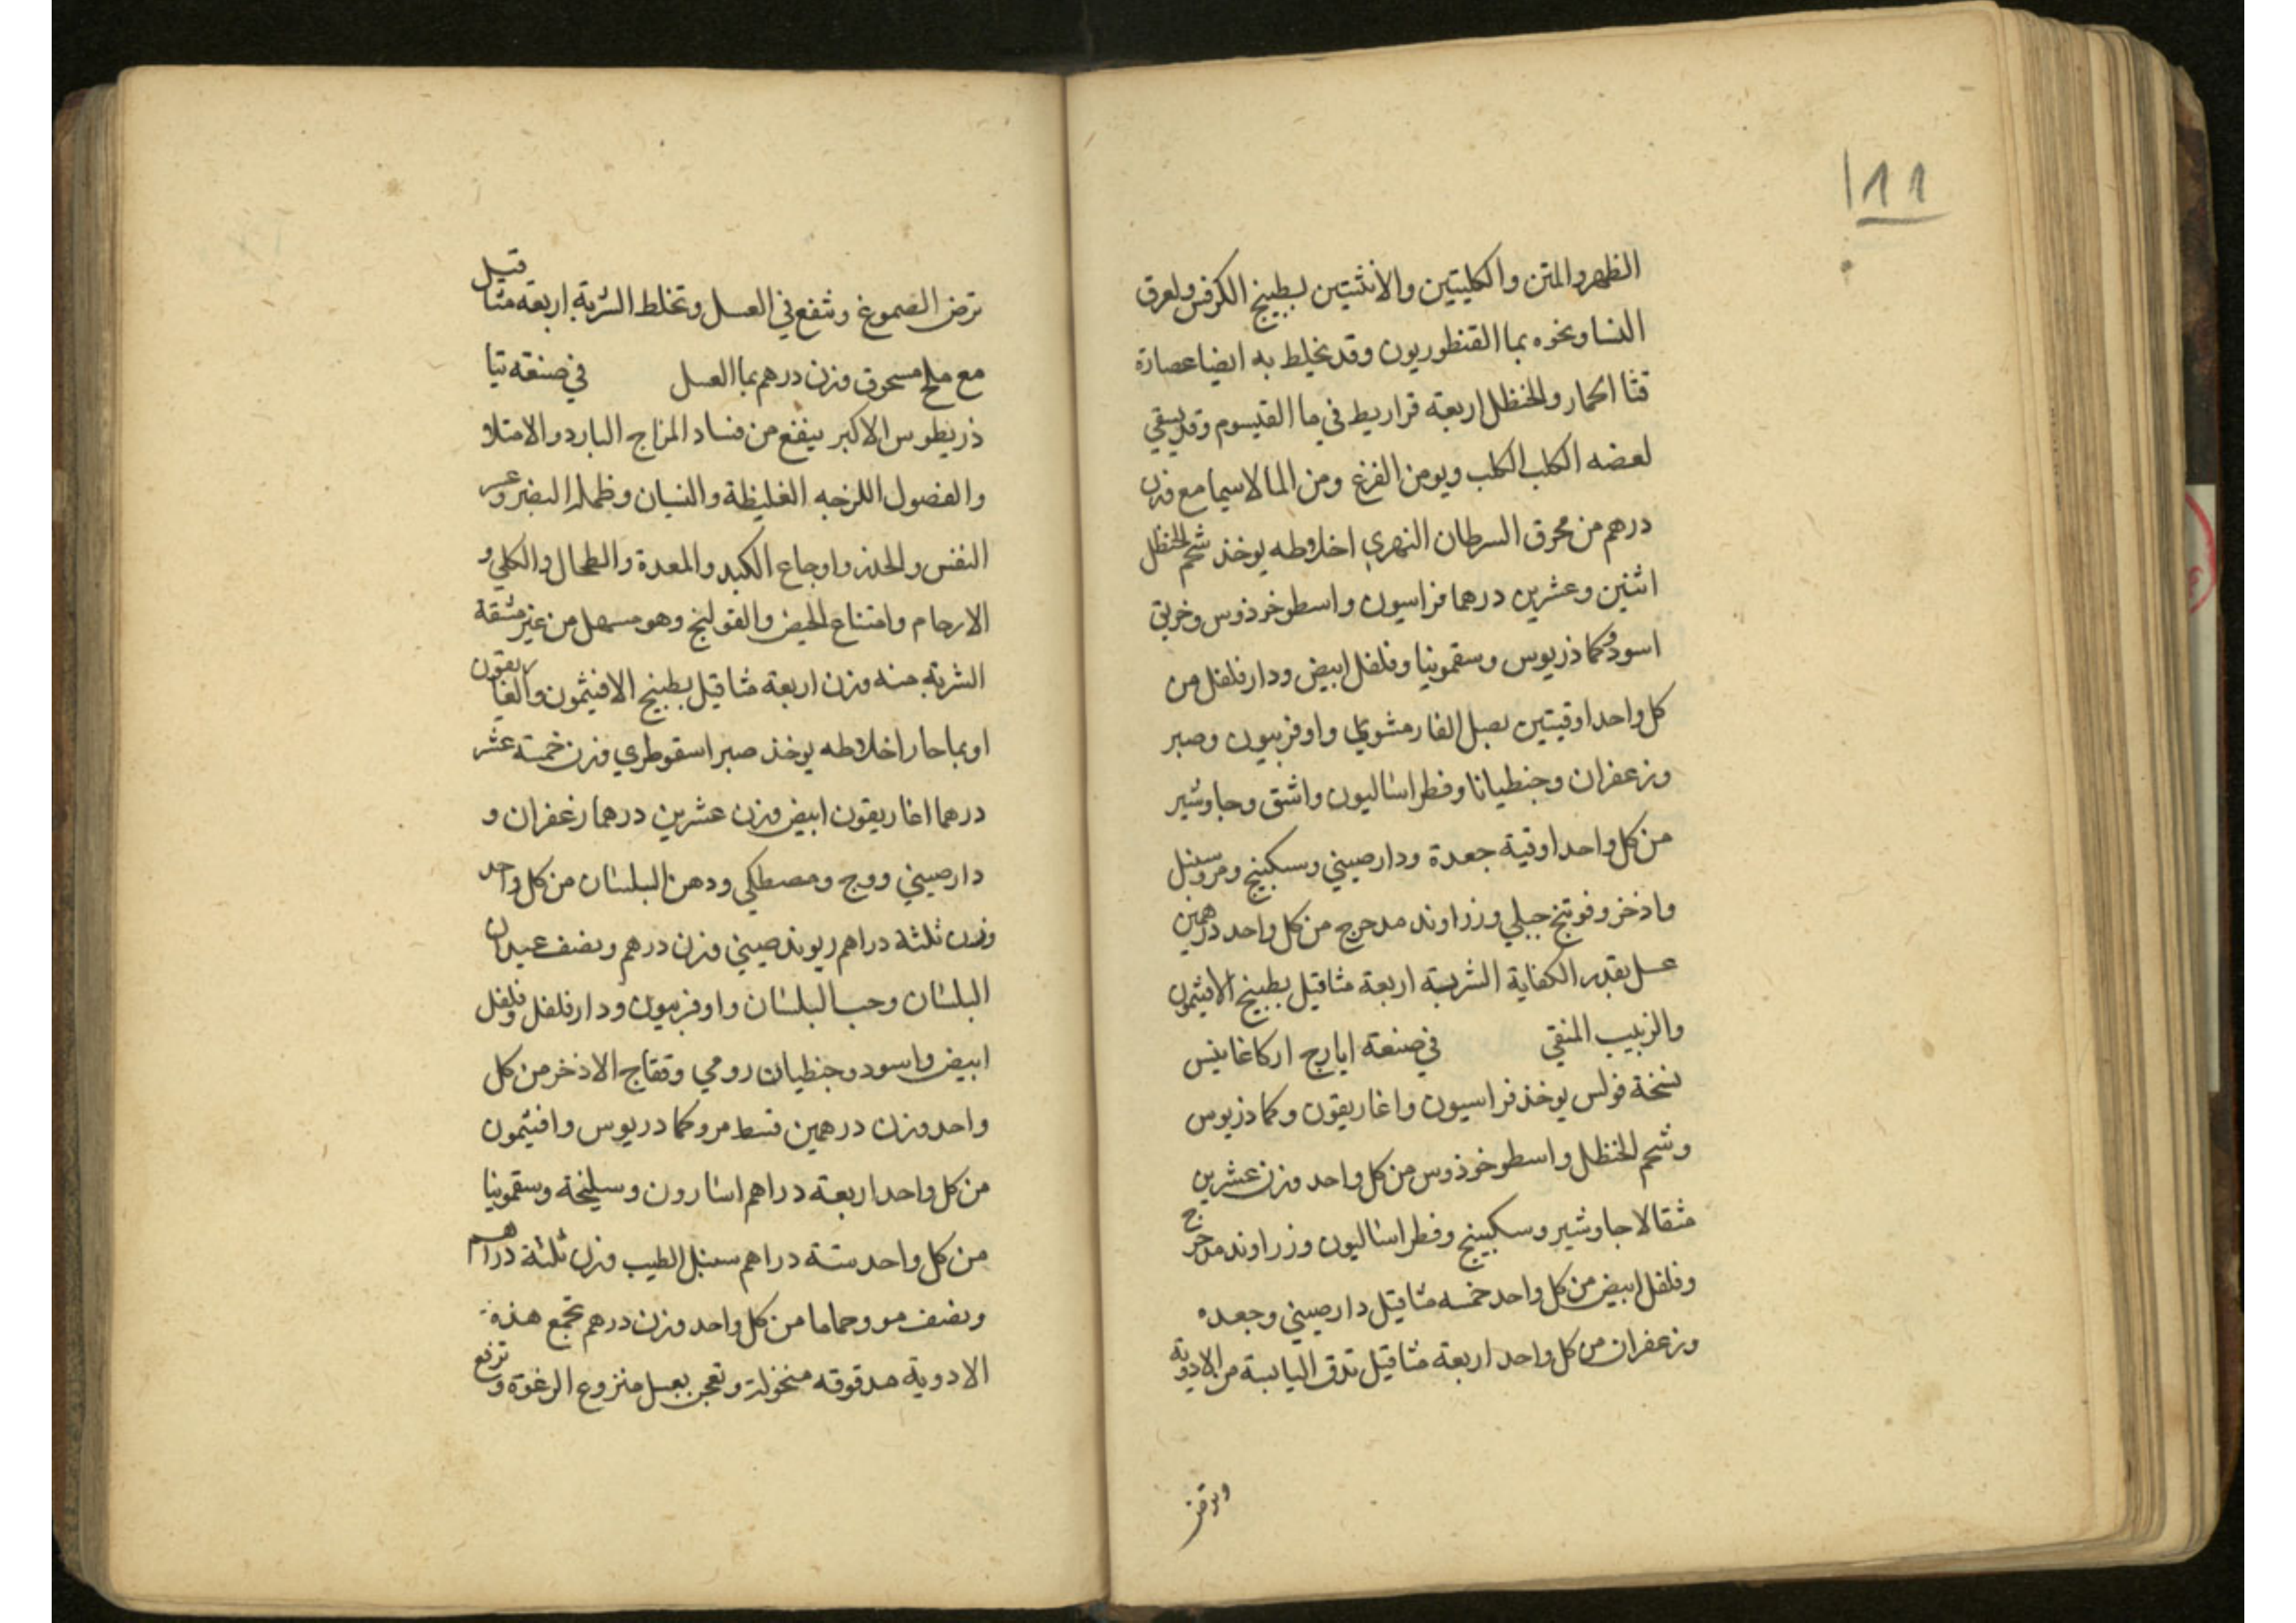 111
الظهر والمتن والكليتين والانثيين بطبيخ الكرفس ولعرق
النسا ونحوه بما القنطوريون وقد يخلط به ايضا عصارة
قثا الحمار والحنظل اربعة قراريط في ما القيسوم وقد يسقي
لعضه الكلب الكلب ويومن الفزع ومن الما لاسيما مع وزن
درهم من محرق السرطان النهري اخلاطه يوخذ شحم الحنظل
اثنين وعشرين درهما فراسيون واسطوخوذوس وخربق
اسود وكماذريوس وسقمونيا وفلفل ابيض ودارفلفل من
كل واحد اوقيتين بصل الفار مشوي واوفربيون وصبر
وزعفران وجنطيانا وفطراساليون واشق وجاوشير
من كل واحد اوقية جعدة ودارصيني وسكبينج ومر وسنبل
واذخر وفوتنج جبلي وزراوند مدحرج من كل واحد درهمين
عسل بقدر الكفاية الشربة اربعة مثاقيل بطبيخ الافيثمون
والزبيب المنقي في صنعة ايارج اركاغانيس
نسخة فولس يوخذ فراسيون واغاريقون وكماذريوس
وشحم الحنظل واسطوخوذوس من كل واحد وزن عشرين
مثقالا جاوشير وسكبينج وفطراساليون وزراوند مدحرج
وفلفل ابيض من كل واحد خمسه مثاقيل دارصيني وجعده
وزعفران من كل واحد اربعة مثاقيل تدق اليابسة من الادوية
وترض
ترض الصموغ وتنقع في العسل وتخلط الشربة اربعة مثاقيل
مع ملح مسحوق وزن درهم بما العسل في صنعة تيا
ذريطوس الاكبر ينفع من فساد المزاج البارد والامتلاو
والفضول اللزجه الغليظة والنسيان وظلمة البصر وعسر
النفس والحدر واوجاع الكبد والمعدة والطحال والكلي و
الارحام وامتناع الحيض والقولنج وهو مسهل من غير مشقة
الشربة منه وزن اربعة مثاقيل بطبيخ الافيثمون والغاريقون
او بما حار اخلاطه يوخذ صبر اسقوطري وزن خمسة عشر
درهما اغاريقون ابيض وزن عشرين درهما زعفران و
دارصيني ووج ومصطكي ودهن البلسان من كل واحد
وزن ثلثة دراهم ريوند صيني وزن درهم ونصف عيدان
البلسان وحب البلسان واوفربيون ودارفلفل وفلفل
ابيض واسود وجنطيان رومي وفقاح الاذخر من كل
واحد وزن درهمين قسط مر وكمادريوس وافثيمون
من كل واحد اربعة دراهم اسارون وسليخة وسقمونيا
من كل واحد ستة دراهم سنبل الطيب وزن ثلثة دراهم
ونصف مو وحماما من كل واحد وزن درهم تجمع هذه
الادوية مدقوقه منخولة وتعجن بعسل منزوع الرغوة وترفع